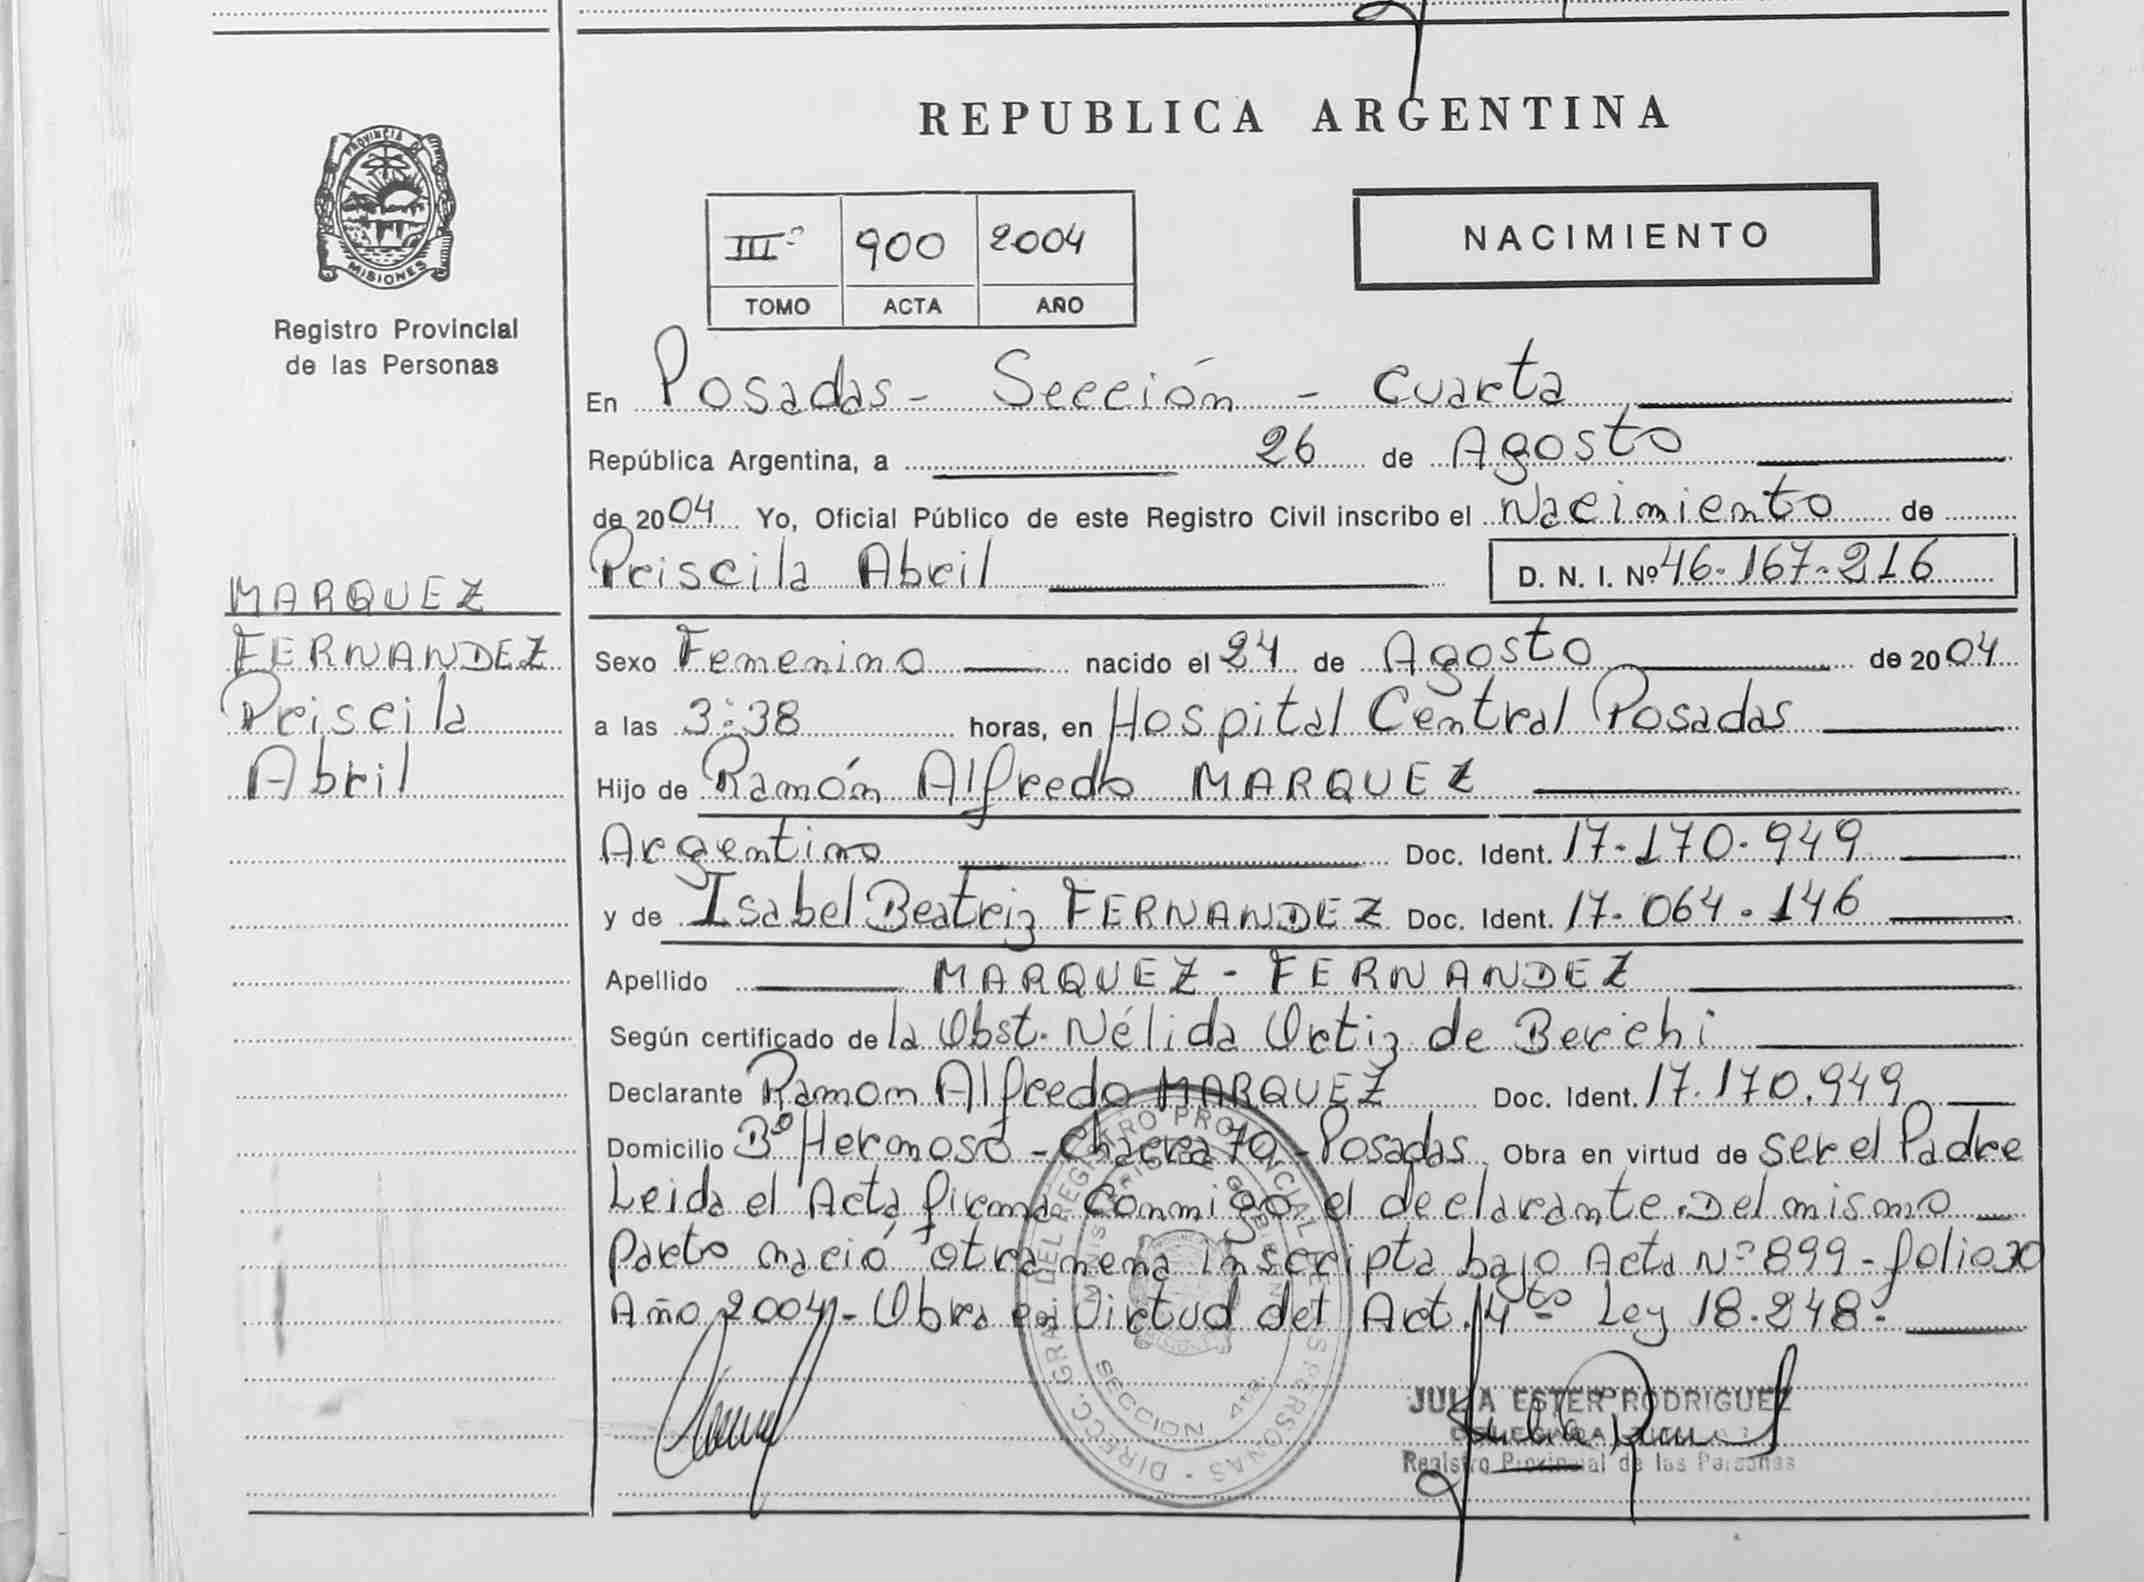 PROVINCIA
MISIONES
Registro Provincial
de las Personas
MARQUEZ
FERNANDEZ
Priscila
Abril
REPUBLICA ARGENTINA
IIIº 900 2004
TOMO ACTA AÑO
NACIMIENTO
En Posadas - Sección - Cuarta
República Argentina, a 26 de Agosto
de 2004 Yo, Oficial Público de este Registro Civil inscribo el Nacimiento de
Priscila Abril D. N. I. Nº 46-167-216
Sexo Femenino nacido el 24 de Agosto de 2004
a las 3:38 horas, en Hospital Central Posadas
Hijo de Ramón Alfredo MARQUEZ
Argentino Doc. Ident. 17-170-949
y de Isabel Beatriz FERNANDEZ Doc. Ident. 17-064-146
Apellido MARQUEZ - FERNANDEZ
Según certificado de la Obst. Nélida Ortiz de Berchi
Declarante Ramon Alfredo MARQUEZ Doc. Ident. 17.170.949
Domicilio Bº Hermoso - Chacra 70 - Posadas. Obra en virtud de ser el Padre
Leida el Acta firma conmigo el declarante. Del mismo
Parto nació otra nena inscripta bajo Acta Nº 899 - folio
Año 2004 - Obra en Virtud del Art. 4to Ley 18.248.
DIRECC. GRAL. DEL REGISTRO PROVINCIAL DE LAS PERSONAS
MINISTERIO DE GOBIERNO
SECCION 4ta.
JULIA ESTER RODRIGUEZ
DELEGADA
Registro Provincial de las Personas